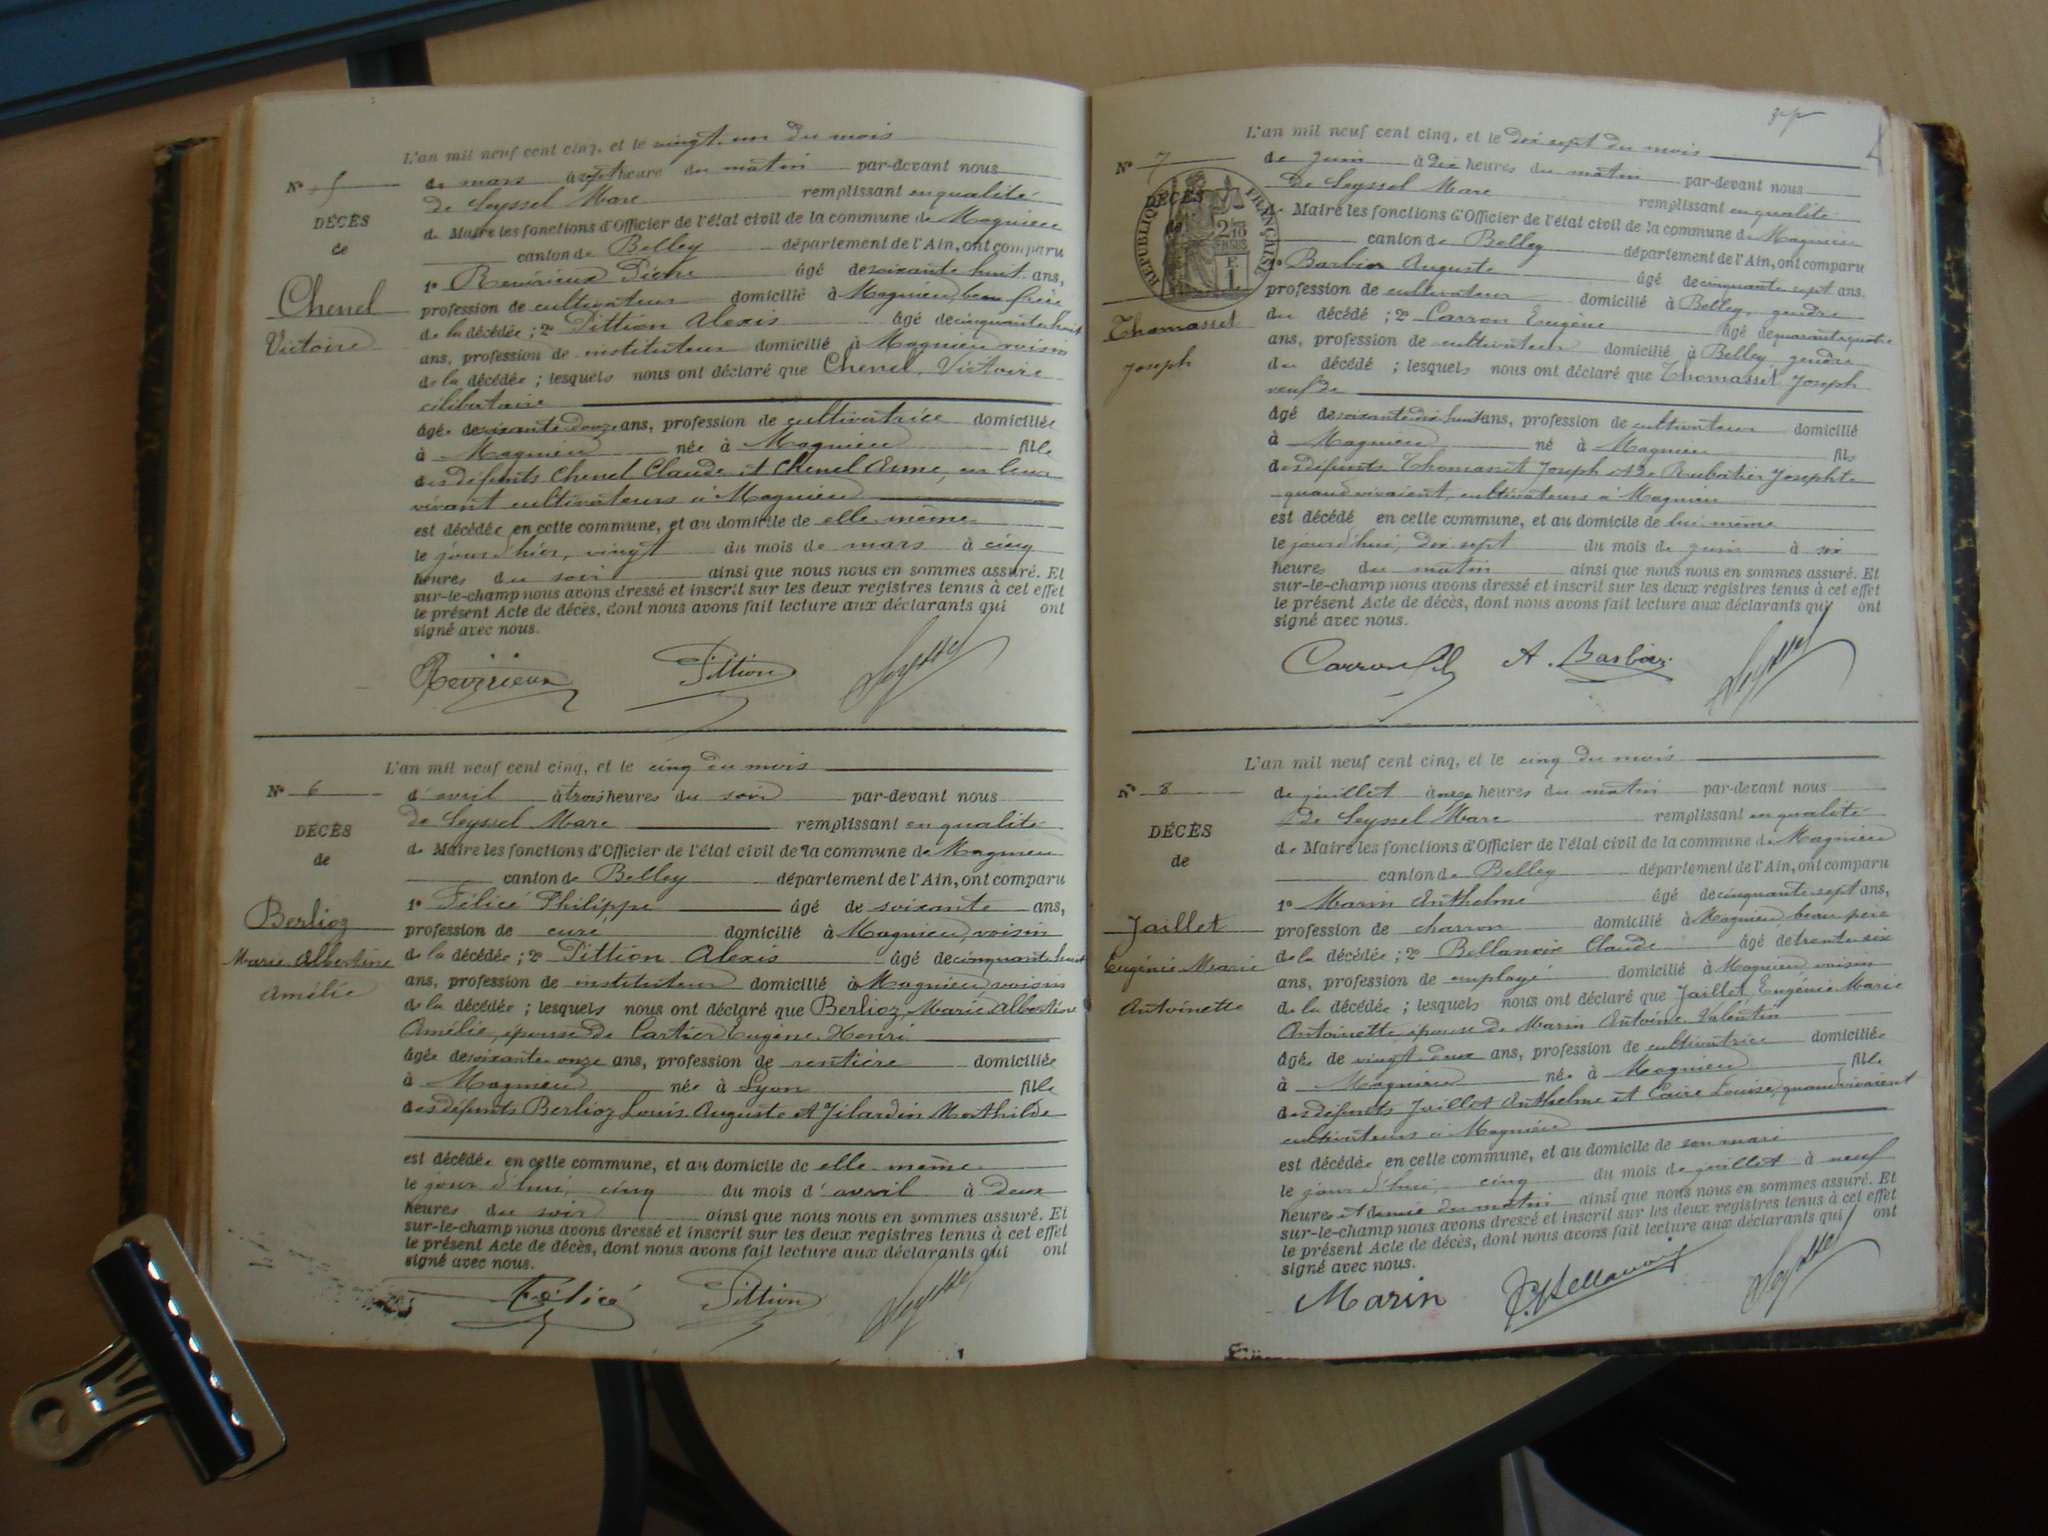 L'an mil neuf cent cinq, et le vingt un du mois
N° 5 de mars à sept heure du matin par-devant nous
de Seyssel Marc remplissant en qualité
DÉCÈS
de Maire les fonctions d'Officier de l'état civil de la commune de Magnieu
de
canton de Belley département de l'Ain, ont comparu
1° Revirieux Pierre âgé de soixante huit ans,
Chenel
profession de cultivateur domicilié à Magnieu, beau frère
Victoire
de la décédée ; 2° Pittion Alexis âgé de cinquante huit
ans, profession de instituteur domicilié à Magnieu voisin
de la décédée ; lesquels nous ont déclaré que Chenel, Victoire
célibataire
âgée de soixante douze ans, profession de cultivatrice domiciliée
à Magnieu née à Magnieu fille
des défunts Chenel Claude et Chenel Aimé, en leur
vivant cultivateurs à Magnieu
est décédée en cette commune, et au domicile de elle même
le jour d'hier, vingt du mois de mars à cinq
heures du soir ainsi que nous nous en sommes assuré. Et
sur-le-champ nous avons dressé et inscrit sur les deux registres tenus à cet effet
le présent Acte de décès, dont nous avons fait lecture aux déclarants qui ont
signé avec nous.
Revirieux Pittion Seyssel
L'an mil neuf cent cinq, et le cinq du mois
N° 6 d'avril à trois heures du soir par-devant nous
de Seyssel Marc remplissant en qualité
DÉCÈS
de Maire les fonctions d'Officier de l'état civil de la commune de Magnieu
de
canton de Belley département de l'Ain, ont comparu
1° Félicé Philippe âgé de soixante ans,
Berlioz
profession de curé domicilié à Magnieu, voisin
Marie Albertine
de la décédée ; 2° Pittion Alexis âgé de cinquante huit
Amélie
ans, profession de instituteur domicilié à Magnieu voisin
de la décédée ; lesquels nous ont déclaré que Berlioz, Marie Albertine
Amélie, épouse de Cartier Eugène Henri
âgée de soixante onze ans, profession de rentière domiciliée
à Magnieu née à Lyon fille
des défunts Berlioz Louis Auguste et Jilardin Mathilde
est décédée en cette commune, et au domicile de elle même
le jour d'hui, cinq du mois d'avril à deux
heures du soir ainsi que nous nous en sommes assuré. Et
sur-le-champ nous avons dressé et inscrit sur les deux registres tenus à cet effet
le présent Acte de décès, dont nous avons fait lecture aux déclarants qui ont
signé avec nous.
Félicé Pittion Seyssel
L'an mil neuf cent cinq, et le dix sept du mois
N° 7 de juin à dix heures du matin par-devant nous
de Seyssel Marc remplissant en qualité
DÉCÈS
RÉPUBLIQUE FRANÇAISE
de Maire les fonctions d'Officier de l'état civil de la commune de Magnieu
canton de Belley département de l'Ain, ont comparu
1° Barbier Auguste âgé de cinquante sept ans.
profession de cultivateur domicilié à Belley, gendre
Thomasset
du décédé ; 2° Carron Eugène âgé de quarante quatre
ans, profession de cultivateur domicilié à Belley gendre
Joseph
du décédé ; lesquels nous ont déclaré que Thomasset Joseph
veuf de
âgé de soixante dix huit ans, profession de cultivateur domicilié
à Magnieu né à Magnieu fils
des défunts Thomasset Joseph et de Rubatier Josephte
quand vivaient, cultivateurs à Magnieu
est décédé en cette commune, et au domicile de lui même
le jour d'hui, dix sept du mois de juin à six
heures du matin ainsi que nous nous en sommes assuré. Et
sur-le-champ nous avons dressé et inscrit sur les deux registres tenus à cet effet
le présent Acte de décès, dont nous avons fait lecture aux déclarants qui ont
signé avec nous.
Carron A. Barbier Seyssel
L'an mil neuf cent cinq, et le cinq du mois
N° 8 de juillet à onze heures du matin par-devant nous
de Seyssel Marc remplissant en qualité
DÉCÈS
de Maire les fonctions d'Officier de l'état civil de la commune de Magnieu
de
canton de Belley département de l'Ain, ont comparu
1° Marin Anthelme âgé de cinquante sept ans,
Jaillet
profession de charron domicilié à Magnieu beau père
de la décédée ; 2° Bellanoix Claude âgé de trente six
Eugénie Marie
ans, profession de employé domicilié à Magnieu voisin
Antoinette
de la décédée ; lesquels nous ont déclaré que Jaillet, Eugénie Marie
Antoinette, épouse de Marin Antoine Valentin
âgée de vingt deux ans, profession de cultivatrice domiciliée
à Magnieu née à Magnieu fille
des défunts Jaillet Anthelme et Caire Louise, quand vivaient
cultivateurs à Magnieu
est décédée en cette commune, et au domicile de son mari
le jour d'hui, cinq du mois de juillet à neuf
heures et demie du matin ainsi que nous nous en sommes assuré. Et
sur-le-champ nous avons dressé et inscrit sur les deux registres tenus à cet effet
le présent Acte de décès, dont nous avons fait lecture aux déclarants qui ont
signé avec nous.
Marin Seyssel